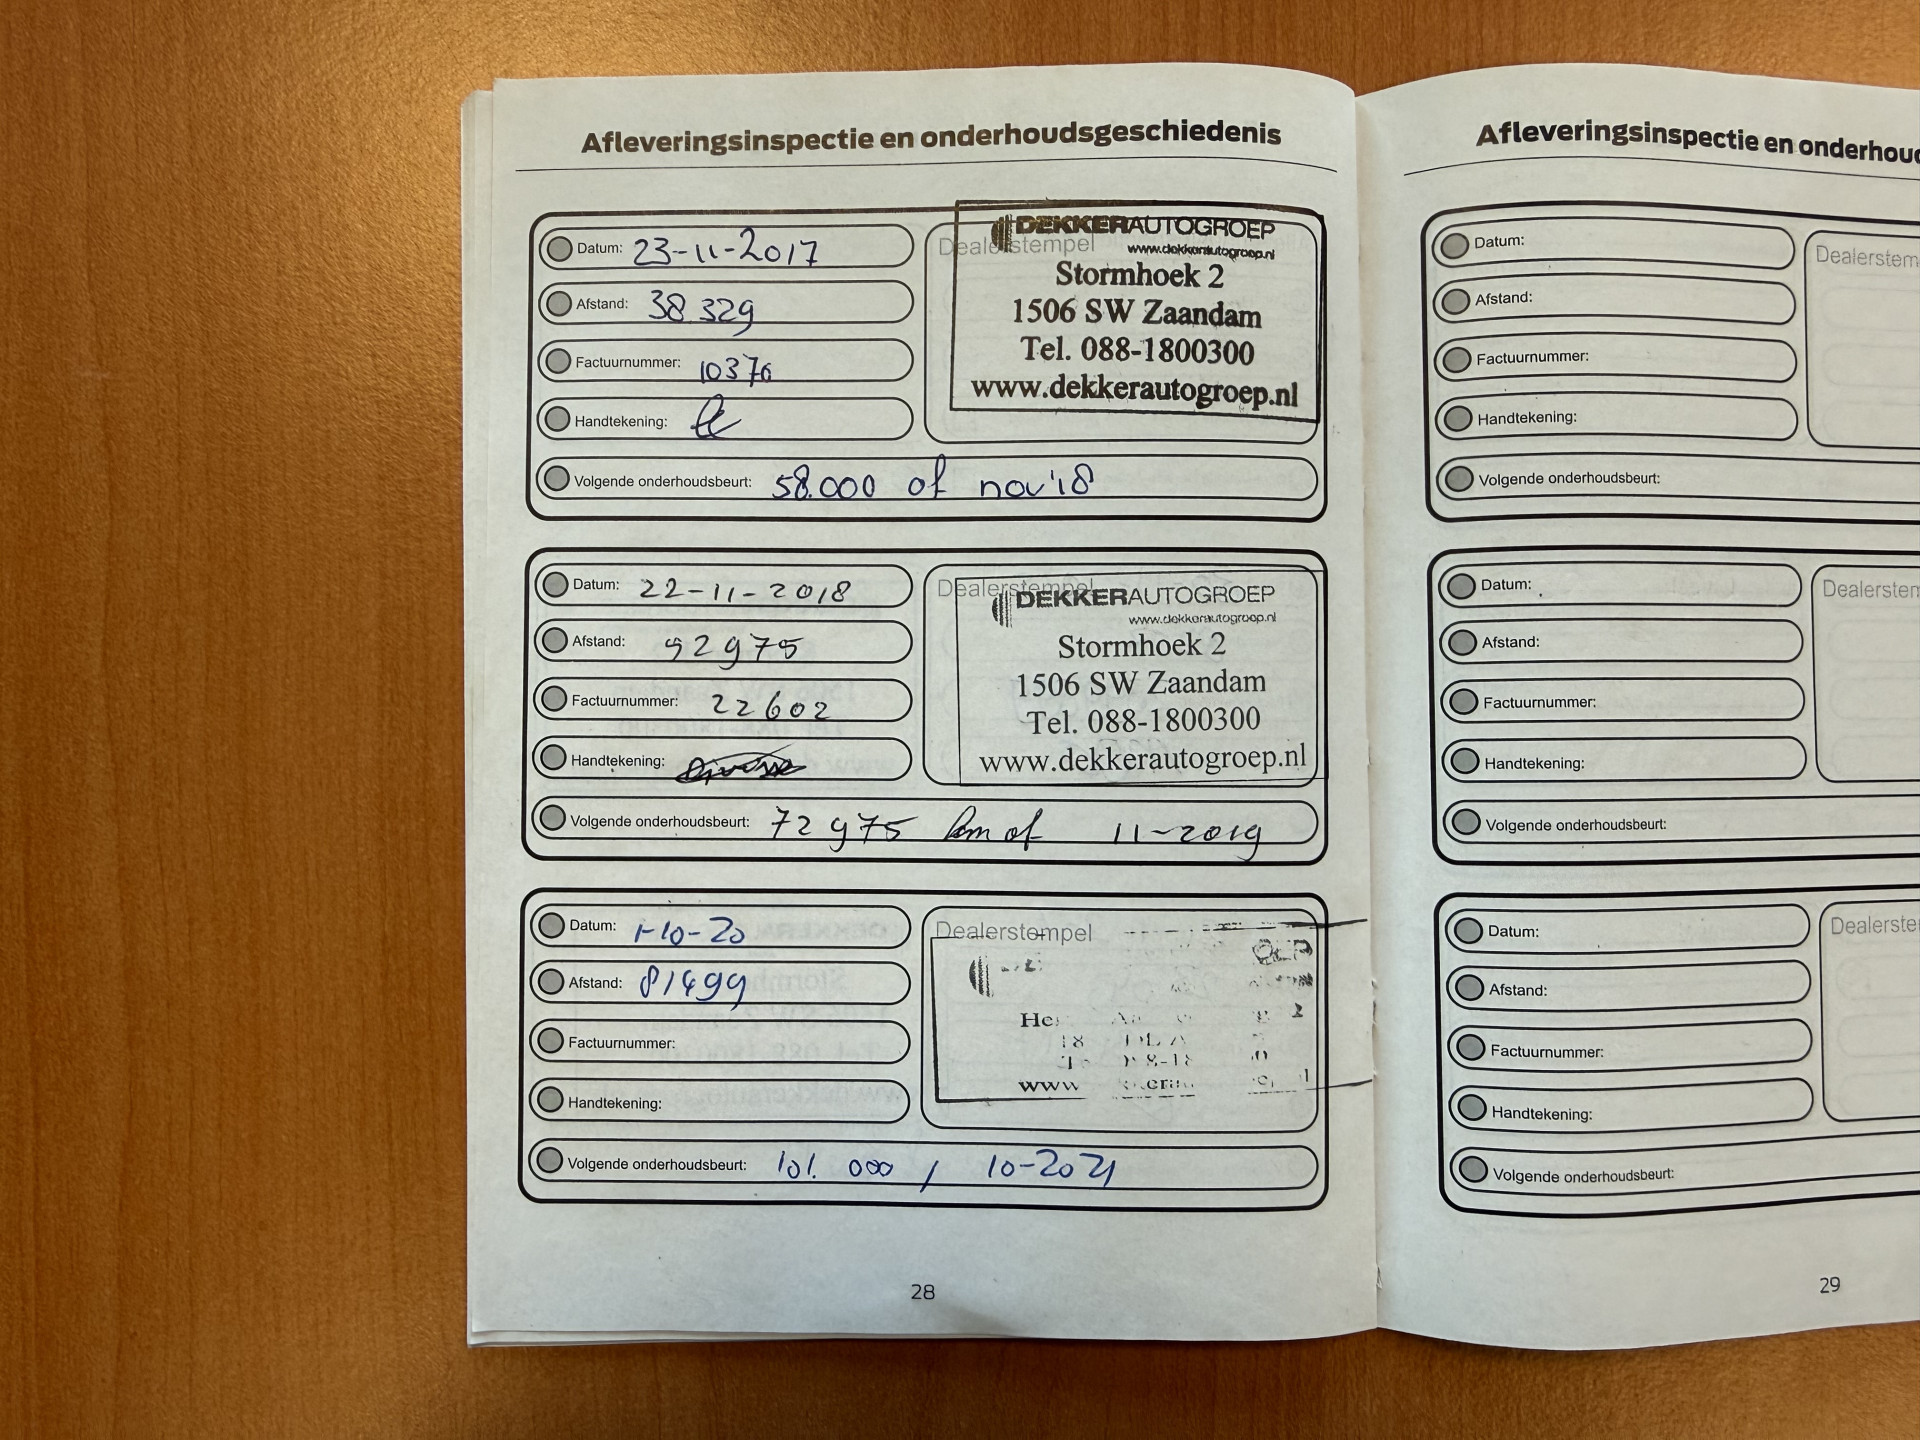 Afleveringsinspectie en onderhoudsgeschiedenis
Datum: 23-11-2017
Afstand: 38.329
Factuurnummer: 10376
Handtekening:
Volgende onderhoudsbeurt: 58.000 of nov'18
Dealerstempel
DEKKERAUTOGROEP
www.dekkerautogroep.nl
Stormhoek 2
1506 SW Zaandam
Tel. 088-1800300
www.dekkerautogroep.nl
Datum: 22-11-2018
Afstand: 52975
Factuurnummer: 22602
Handtekening:
Volgende onderhoudsbeurt: 72975 km of 11-2019
Dealerstempel
DEKKERAUTOGROEP
www.dekkerautogroep.nl
Stormhoek 2
1506 SW Zaandam
Tel. 088-1800300
www.dekkerautogroep.nl
Datum: 1-10-20
Afstand: 81499
Factuurnummer:
Handtekening:
Volgende onderhoudsbeurt: 101.000 / 10-2021
Dealerstempel
www
28
Afleveringsinspectie en onderhoud
Datum:
Afstand:
Factuurnummer:
Handtekening:
Volgende onderhoudsbeurt:
Dealerstem
Datum:
Afstand:
Factuurnummer:
Handtekening:
Volgende onderhoudsbeurt:
Dealerstem
Datum:
Afstand:
Factuurnummer:
Handtekening:
Volgende onderhoudsbeurt:
Dealerste
29